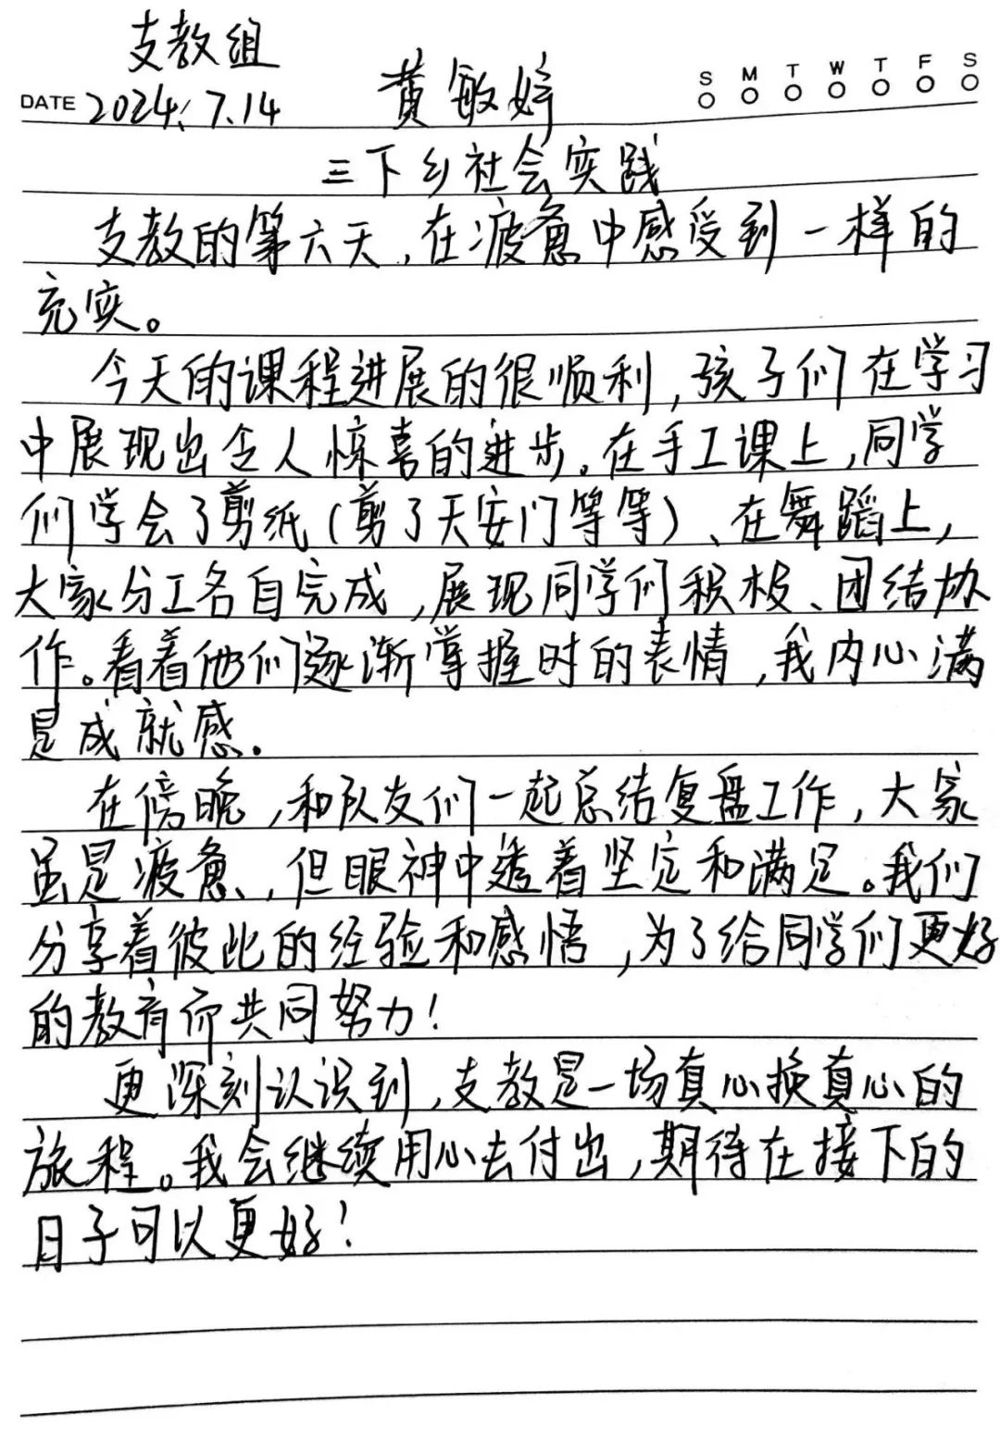 支教组
DATE 2024.7.14 黄敏婷 S M T W T F S
三下乡社会实践
支教的第六天,在疲惫中感受到一样的
充实。
今天的课程进展的很顺利,孩子们在学习
中展现出令人惊喜的进步。在手工课上,同学
们学会了剪纸(剪了天安门等等)、在舞蹈上,
大家分工各自完成,展现同学们积极、团结协
作。看着他们逐渐掌握时的表情,我内心满
是成就感。
在傍晚,和队友们一起总结复盘工作,大家
虽是疲惫,但眼神中透着坚定和满足。我们
分享着彼此的经验和感悟,为了给同学们更好
的教育而共同努力!
更深刻认识到,支教是一场真心换真心的
旅程。我会继续用心去付出,期待在接下的
日子可以更好!